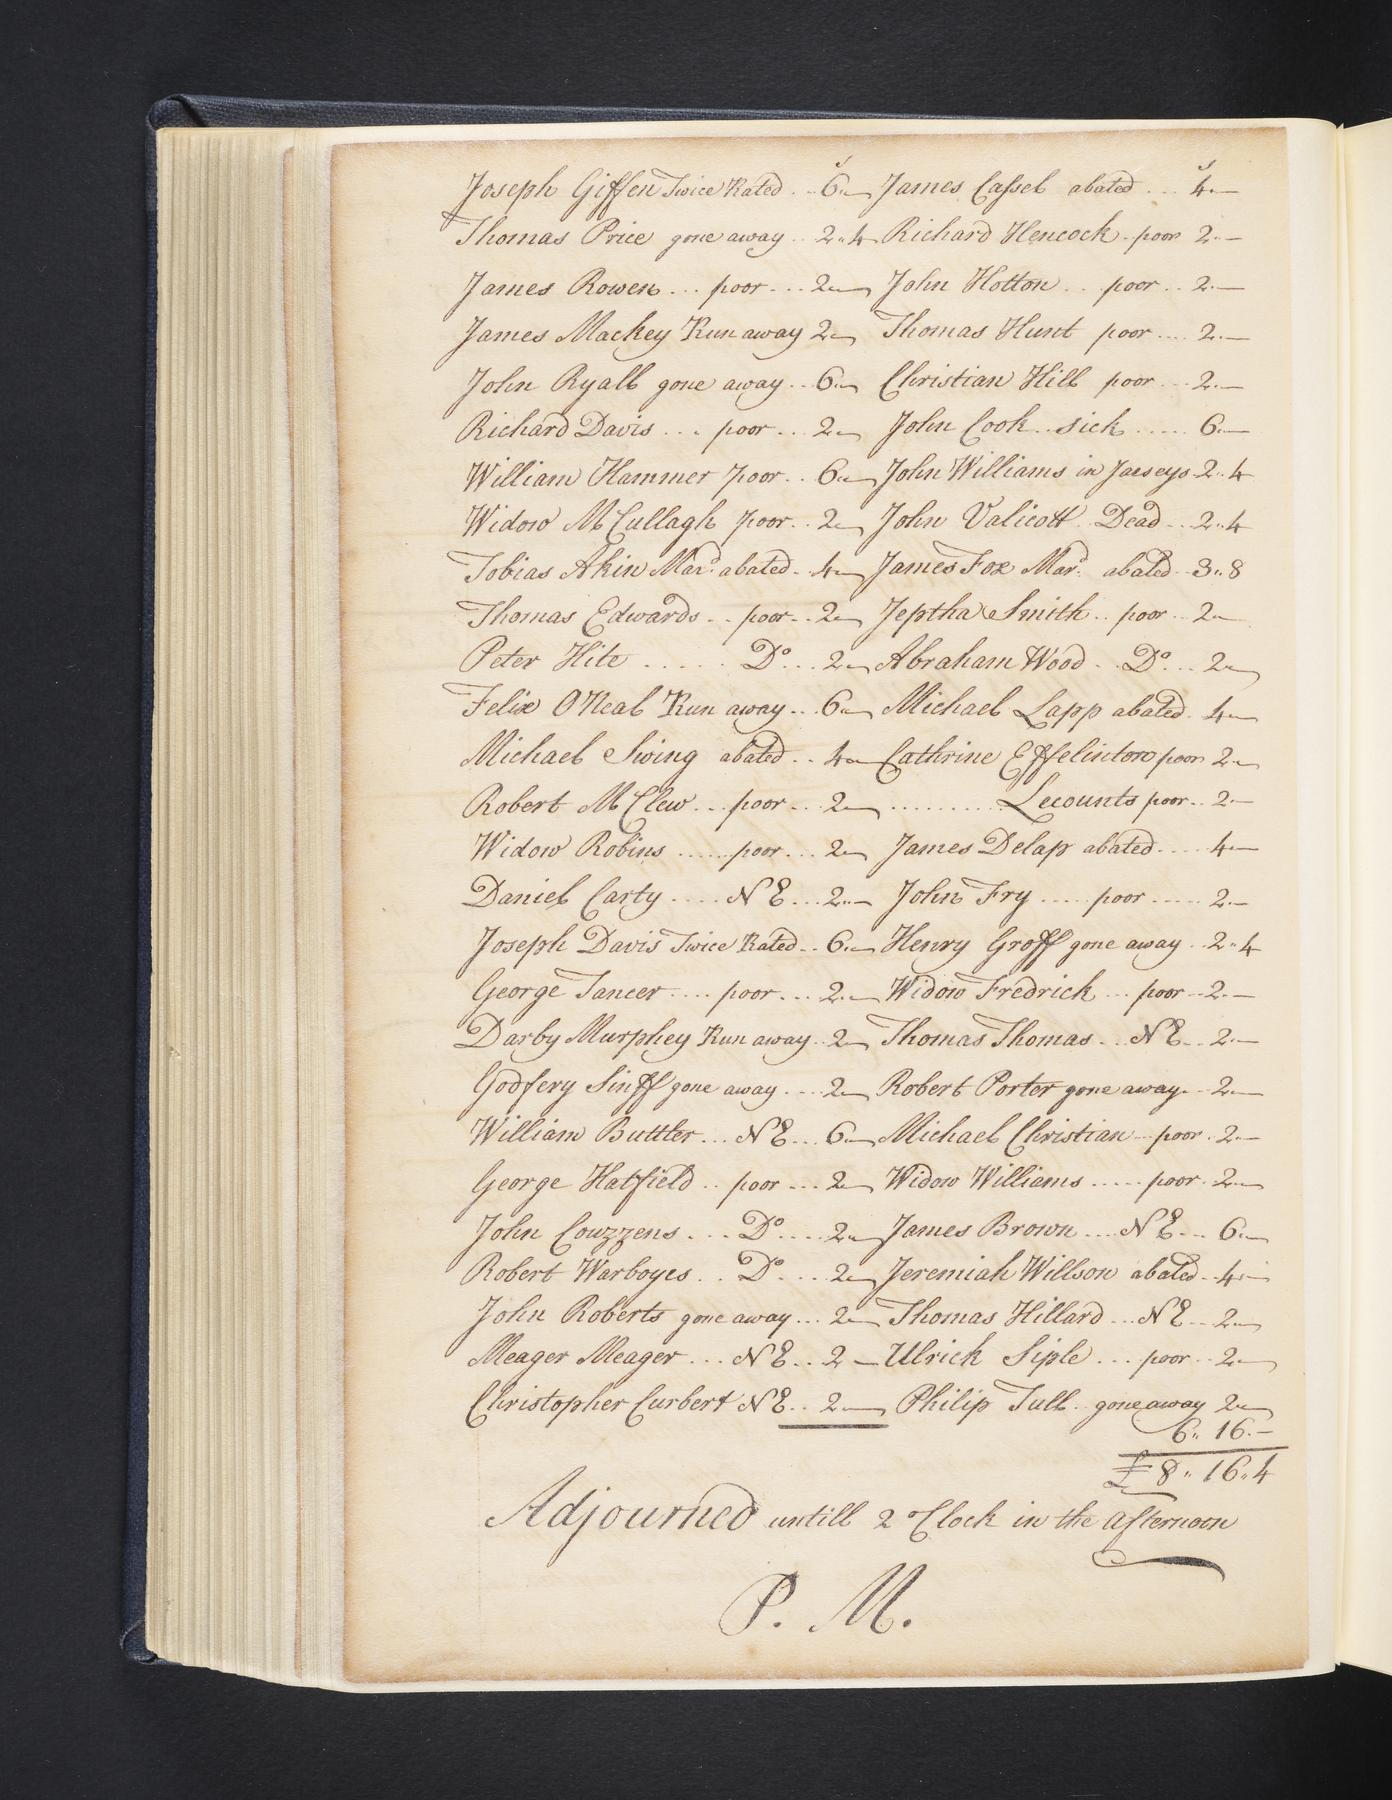 s s
Joseph Giffen Twice Rated .. 6..— James Cassel abated .... 4..—
Thomas Price gone away .. 2..4 Richard Hencock . poor 2..—
James Rowen ... poor ... 2..— John Hotton .. poor .. 2..—
James Mackey Run away 2..— Thomas Hunt poor .... 2..—
John Ryall gone away .. 6..— Christian Hill poor ... 2..—
Richard Davis ... poor ... 2..— John Cook .. sick ..... 6..—
William Hammer poor .. 6..— John Williams in Jaeseys 2..4
Widow McCullagh poor .. 2..— John Valicott . Dead ... 2..4
Tobias Akin Mar.d abated . 4..— James Fox Mar.d abated .. 3..8
Thomas Edwards .. poor .. 2..— Jeptha Smith .. poor .. 2..—
Peter Hite ..... Do ... 2..— Abraham Wood .. Do ... 2..—
Felix ONeal Run away .. 6..— Michael Lapp abated . 4..—
Michael Swing abated .. 4..— Cathrine Effelinton poor 2..—
Robert McClew ... poor ... 2..— .......... Lecounts poor .. 2..—
Widow Robins ..... poor ... 2..— James Delap abated ..... 4..—
Daniel Carty .... N E ... 2..— John Fry ..... poor ..... 2..—
Joseph Davis Twice Rated .. 6..— Henry Groff gone away .. 2..4
George Tancer .... poor ... 2..— Widow Fredrick ... poor .. 2..—
Darby Murphey Run away .. 2..— Thomas Thomas ... N E .. 2..—
Godfery Sinff gone away .... 2..— Robert Porter gone away .. 2..—
William Buttler ... N E ... 6..— Michael Christian .. poor . 2..—
George Hatfield .. poor ... 2..— Widow Williams ..... poor . 2..—
John Couzzens ... Do .... 2..— James Brown .... N E ... 6..—
Robert Warboyes .. Do .... 2..— Jeremiah Willson abated .. 4..—
John Roberts gone away ... 2..— Thomas Hillard ... N E .. 2..—
Meager Meager ... N E .. 2 — Ulrick Siple ... poor .. 2..—
Christopher Curbert N E .. 2..— Philip Tull .. gone away 2..—
6.. 16..—
£ 8.. 16..4
Adjourned untill 2 oClock in the afternoon
P. M.